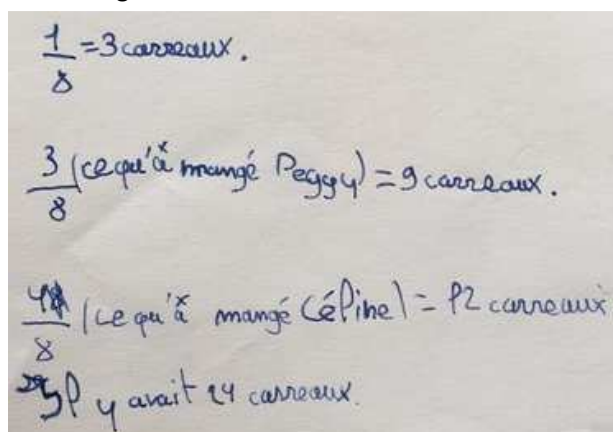 1/8 = 3 carreaux.
3/8 (ce qu'à mangé Peggy) = 9 carreaux.
4/8 (ce qu'à mangé Céline) = 12 carreaux
Il y avait 24 carreaux.